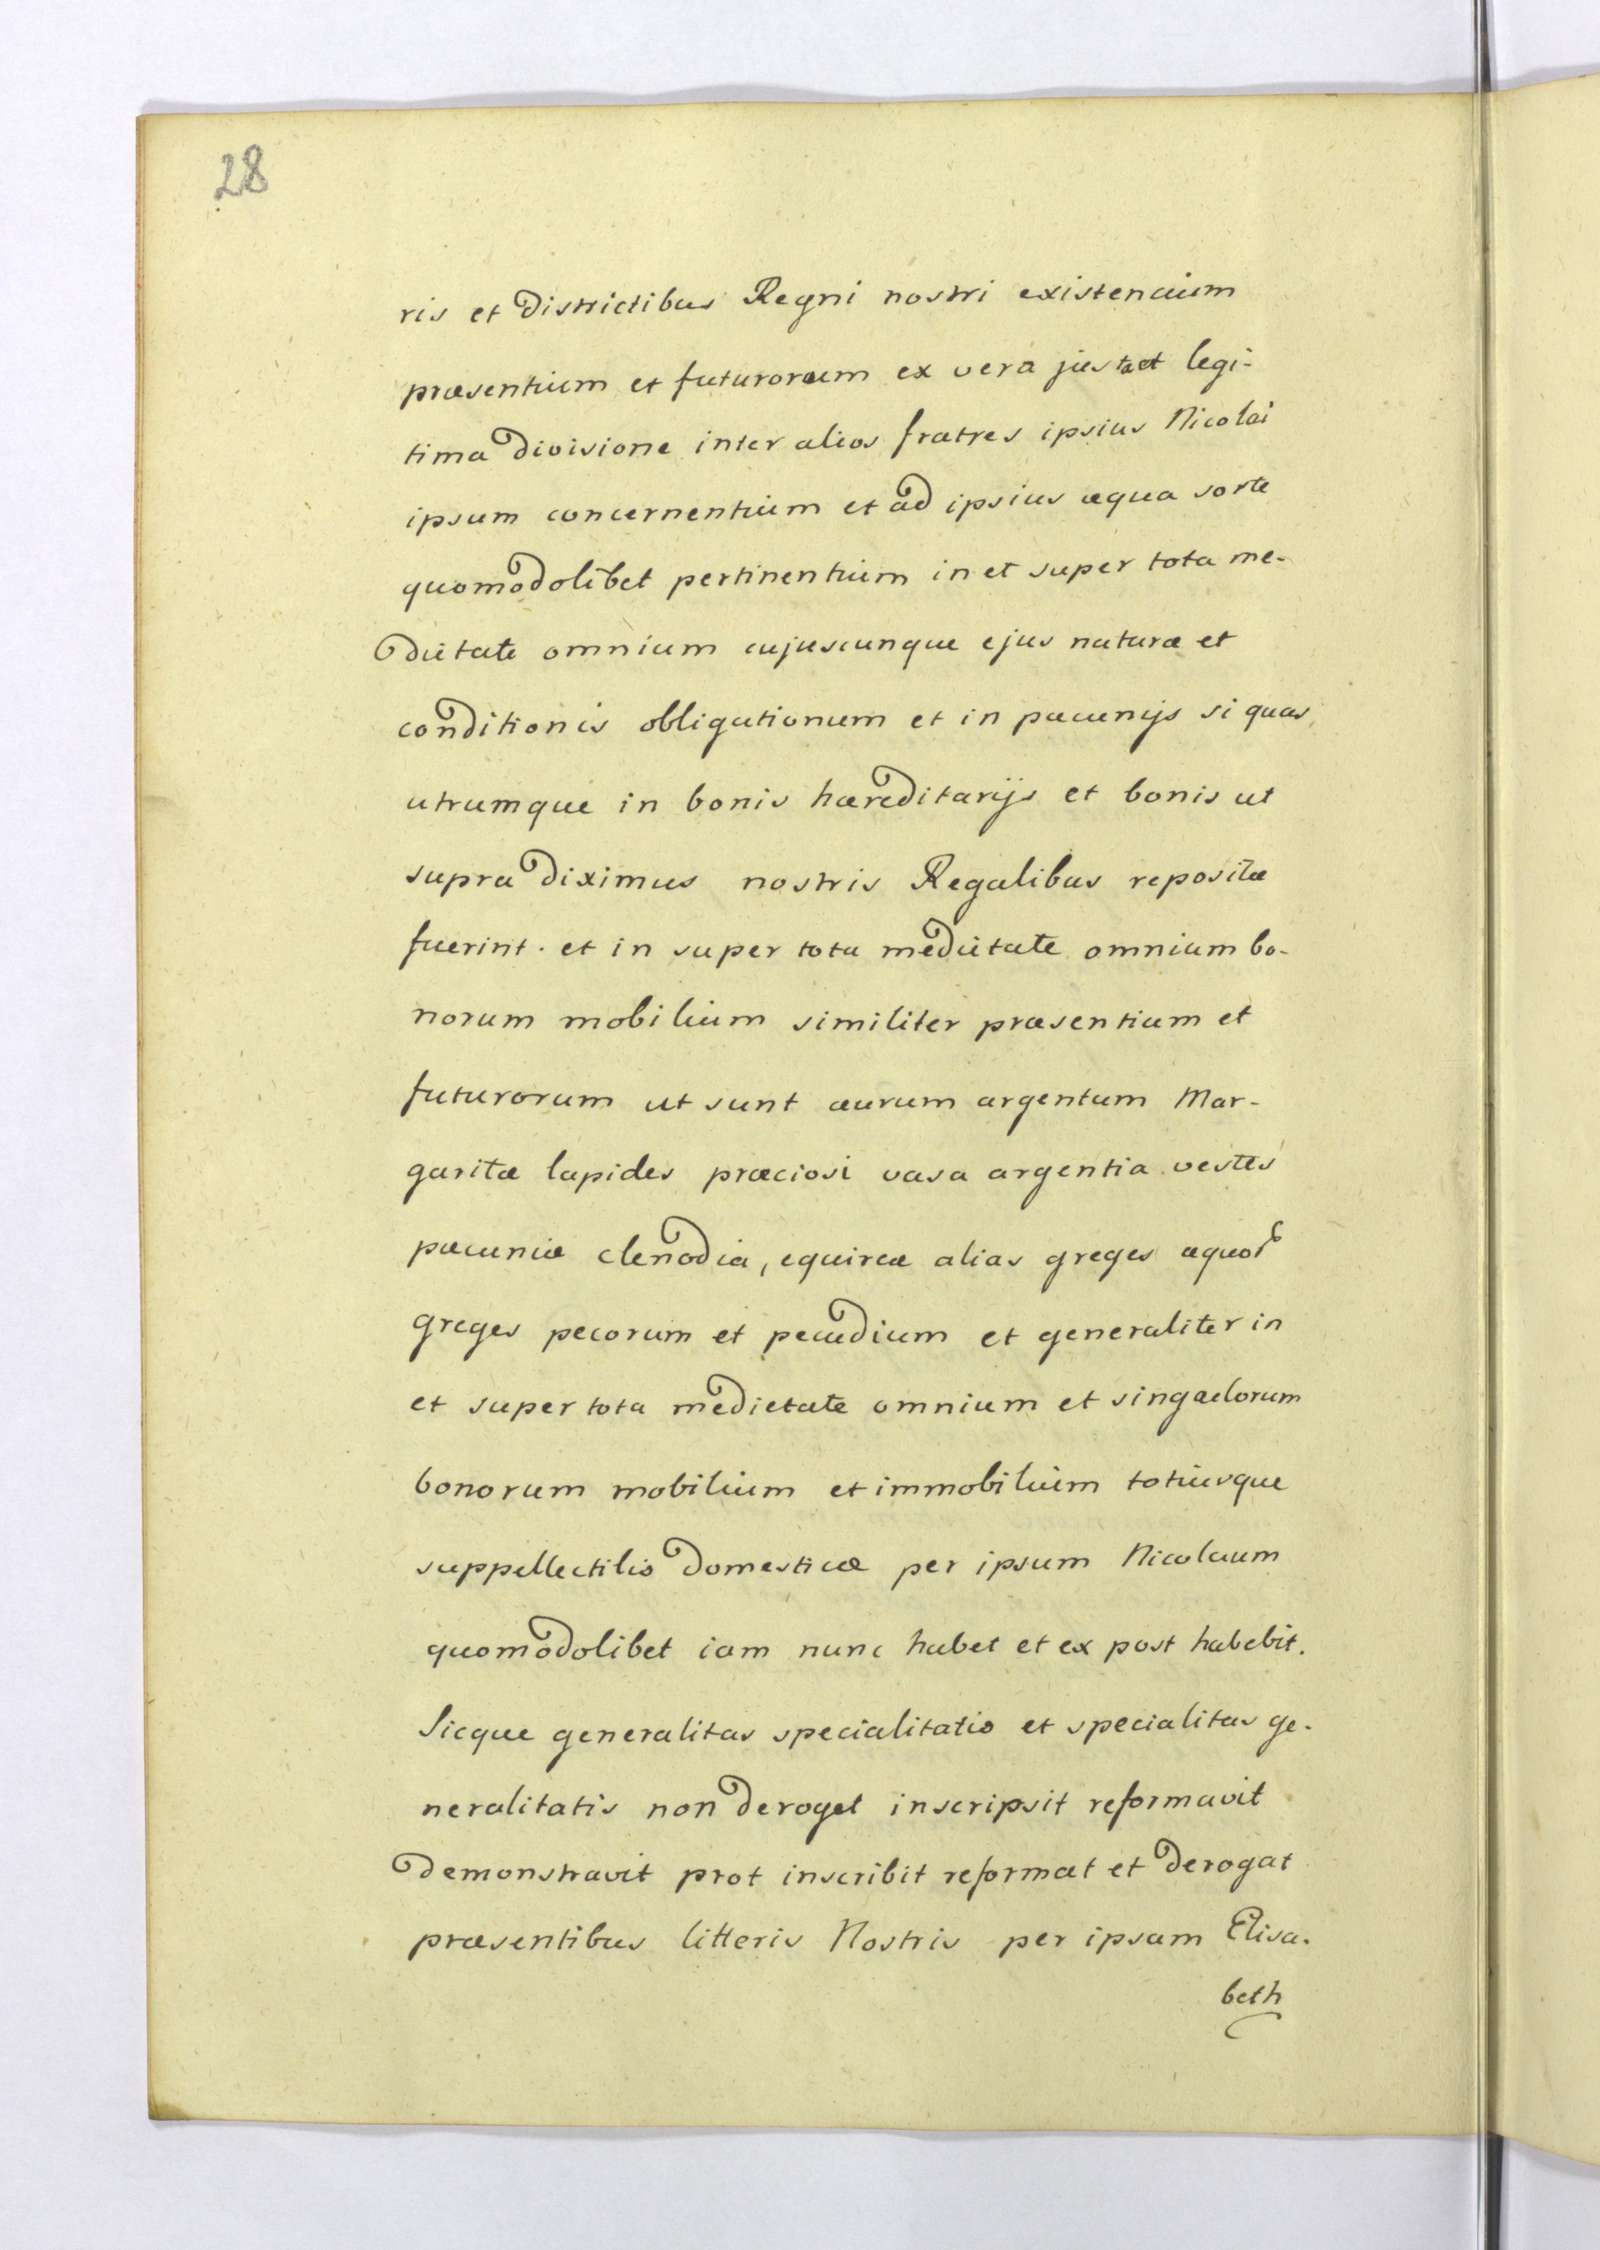 28
ris et districtibus Regni nostri existencium
præsentium et futurorum ex vera justa et legi-
tima divisione inter alios fratres ipsius Nicolai
ipsum concernentium et ad ipsius æqua sorte
quomodolibet pertinentium in et super tota me-
dietate omnium cujuscunque ejus naturæ et
conditionis obligationum et in pæcunijs si quas
utrumque in bonis hæreditarijs et bonis ut
supra diximus nostris Regalibus repositæ
fuerint. et in super tota medietate omnium bo-
norum mobilium similiter præsentium et
futurorum ut sunt aurum argentum Mar-
garitæ lapides præciosi vasa argentia vestes
pæcuniæ clenodia, equireæ alias greges
greges pecorum et pecudium et generaliter in
et super tota medietate omnium et singulorum
bonorum mobilium et immobilium totiusque
suppellectilis domesticæ per ipsum Nicolaum
quomodolibet iam nunc habet et ex post habebit.
Sicque generalitas specialitatis et specialitas ge-
neralitatis non deroget inscripsit reformavit
demonstravit prot inscribit reformat et derogat
præsentibus litteris Nostris per ipsam Elisa-
beth